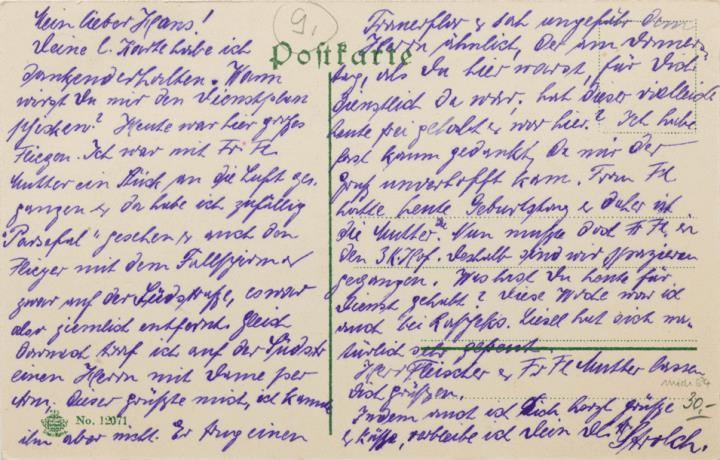 9.
Postkarte
Mein lieber Hans!
Deine l. Karte habe ich
dankend erhalten. Wann
wirst Du mir den Dienstplan
schicken? Heute war hier großes
Fliegen. Ich war mit Fr Fl
Mutter ein Stück an die Luft ge-
gangen & da habe ich zufällig
"Parsefal" gesehen & auch den
Flieger mit dem Fallschirm &
zwar auf der Südstraße, es war
aber ziemlich entfernt. Gleich
darnach traf ich auf der Südstr
einen Herrn mit Dame per
Arm. Dieser grüßte mich, ich kannte
ihn aber nicht. Er trug einen
No. 12071
Trauerflor & sah ungefähr dem
Herrn ähnlich, der am Donners-
tag, als Du hier warst, für Dich
dienstlich da war, hat dieser vielleicht
heute frei gehabt & war hier? Ich habe
fast kaum gedankt, da mir der
Gruß unverhofft kam. Frau Fl
hatte heute Geburtstag & daher ist
die Mutter da. Nun mußte doch Fr Fl in
den 3 K. Hof. Deshalb sind wir spazieren
gegangen. Was hast Du heute für
Dienst gehabt? Diese Woche war ich
auch bei. Liesell hat sich na-
türlich sehr gefreut.
Herr Fleischer & Fr Fl Mutter lassen
Dich grüßen.
Indem auch ich Dich herzl grüße
& küsse, verbleibe ich Dein
Strolch.
30,-